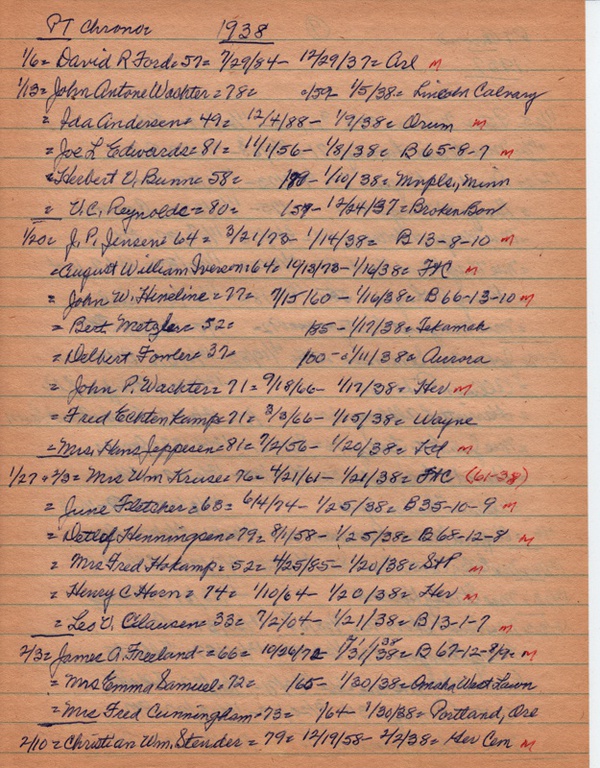 PT Chronoz 1938
1/6 = David R Ford = 57 = 7/29/84 - 12/29/37 = Arl m
1/13 = John Antone Wachter = 78 = /59 - 1/5/38 = Lincoln Calvary
= Ida Andersen = 49 = 12/4/88 - 1/9/38 = Orum m
= Joe L Edwards = 81 = 11/1/56 - 1/8/38 = B 65-8-7 m
= Herbert V. Bunn = 58 = - 1/10/38 = Mnpls., Minn
= V.C. Reynolds = 80 = 157 - 12/24/37 = Broken Bow
1/20 = J. P. Jensen = 64 = 3/21/73 - 1/14/38 = B 13-8-10 m
= August William Iverson = 64 = 10/13/73 - 1/16/38 = FHC m
= John W. Hineline = 77 = 7/15/60 - 1/16/38 = B 66-13-10 m
= Bert Metzler = 52 = /85 - 1/17/38 = Tekamah
= Delbert Fowler = 37 = /00 - 1/11/38 = Aurora
= John P. Wachter = 71 = 9/18/66 - 1/17/38 = Her m
= Fred Echtenkamp = 71 = 3/3/66 - 1/15/38 = Wayne
= Mrs. Hans Jeppesen = 81 = 7/2/56 - 1/20/38 = m
1/27 + 2/3 = Mrs Wm. Kruse = 76 = 4/21/61 - 1/21/38 = FHC (61-38)
= June Fletcher = 63 = 6/4/74 - 1/25/38 = B 35-10-9 m
= Detlef Henningsen = 79 = 8/1/58 - 1/25/38 = B 68-12-8 m
= Mrs Fred Hokamp = 52 = 4/25/85 - 1/20/38 = StP m
= Henry C Horn = 74 = 1/10/64 - 1/20/38 = Her m
= Leo V. Clausen = 33 = 7/2/04 - 1/21/38 = B 13-1-7 m
2/3 = James A. Freeland = 66 = 10/26/71 - 1/31/38 = B 67-12-8/9 = m
= Mrs Emma Samuel = 72 = /65 - 1/30/38 = Omaha West Lawn
= Mrs Fred Cunningham = 73 = /64 - 1/30/38 = Portland, Ore
2/10 = Christian Wm. Stender = 79 = 12/19/58 - 2/2/38 = Her Cem m